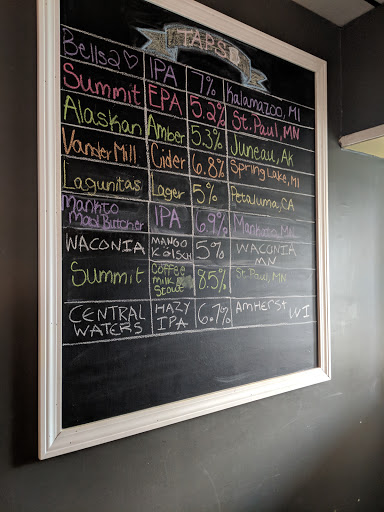 TAPS
Bells 2 ♡ IPA 7% Kalamazoo, MI
Summit EPA 5.2% St. Paul, MN
Alaskan Amber 5.3% Juneau, AK
Vander Mill Cider 6.8% Spring Lake, MI
Lagunitas Lager 5% Petaluma, CA
Mankto Mad Butcher IPA 6.9% Mankato, MN
WACONIA MANGO KÖLSCH 5% WACONIA MN
Summit Coffee milk Stout 8.5% St. Paul, MN
CENTRAL WATERS HAZY IPA 6.7% AMHERST WI